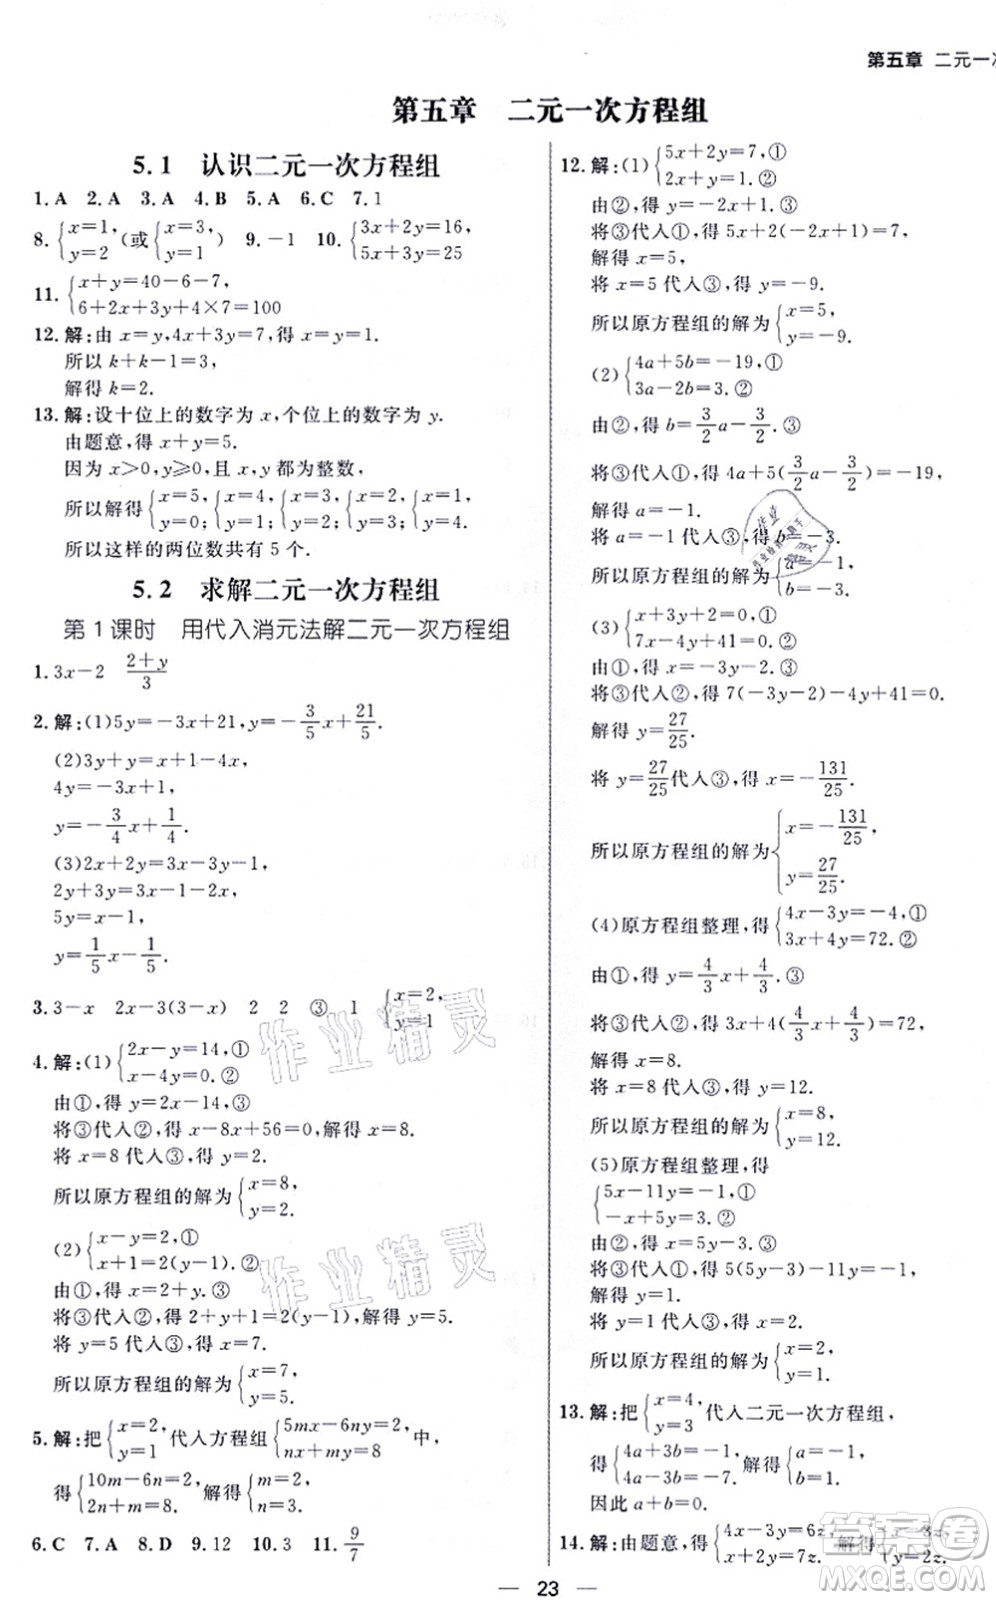 第五章 二元一次
第五章 二元一次方程组
5.1 认识二元一次方程组
1.A 2.A 3.A 4.B 5.A 6.C 7.1
8.{x=1, y=2 (或{x=3, y=1) 9.-1 10.{3x+2y=16, 5x+3y=25
11.{x+y=40-6-7, 6+2x+3y+4×7=100
12.解:由 x=y,4x+3y=7,得 x=y=1.
所以 k+k-1=3,
解得 k=2.
13.解:设十位上的数字为 x,个位上的数字为 y.
由题意,得 x+y=5.
因为 x>0,y⩾0,且 x,y 都为整数,
所以解得{x=5, y=0;{x=4, y=1;{x=3, y=2;{x=2, y=3;{x=1, y=4.
所以这样的两位数共有 5 个.
5.2 求解二元一次方程组
第1课时 用代入消元法解二元一次方程组
1.3x-2 (2+y)/3
2.解:(1)5y=-3x+21,y=-3/5x+21/5.
(2)3y+y=x+1-4x,
4y=-3x+1,
y=-3/4x+1/4.
(3)2x+2y=3x-3y-1,
2y+3y=3x-2x-1,
5y=x-1,
y=1/5x-1/5.
3.3-x 2x-3(3-x) 2 2 ③ 1 {x=2, y=1
4.解:(1){2x-y=14,① x-4y=0.②
由①,得 y=2x-14,③
将③代入②,得 x-8x+56=0,解得 x=8.
将 x=8 代入③,得 y=2.
所以原方程组的解为{x=8, y=2.
(2){x-y=2,① x+1=2(y-1).②
由①,得 x=2+y.③
将③代入②,得 2+y+1=2(y-1),解得 y=5.
将 y=5 代入③,得 x=7.
所以原方程组的解为{x=7, y=5.
5.解:把{x=2, y=1 代入方程组{5mx-6ny=2, nx+my=8 中,
得{10m-6n=2, 2n+m=8, 解得{m=2, n=3.
6.C 7.A 8.D 9.12 10.3 11.9/7
12.解:(1){5x+2y=7,① 2x+y=1.②
由②,得 y=-2x+1.③
将③代入①,得 5x+2(-2x+1)=7,
解得 x=5,
将 x=5 代入③,得 y=-9.
所以原方程组的解为{x=5, y=-9.
(2){4a+5b=-19,① 3a-2b=3.②
由②,得 b=3/2a-3/2.③
将③代入①,得 4a+5(3/2a-3/2)=-19,
解得 a=-1.
将 a=-1 代入③,得 b=-3.
所以原方程组的解为{a=-1, b=-3.
(3){x+3y+2=0,① 7x-4y+41=0.②
由①,得 x=-3y-2.③
将③代入②,得 7(-3y-2)-4y+41=0.
解得 y=27/25.
将 y=27/25代入③,得 x=-131/25.
所以原方程组的解为{x=-131/25, y=27/25.
(4)原方程组整理,得{4x-3y=-4,① 3x+4y=72.②
由①,得 y=4/3x+4/3.③
将③代入②,得 3x+4(4/3x+4/3)=72,
解得 x=8.
将 x=8 代入③,得 y=12.
所以原方程组的解为{x=8, y=12.
(5)原方程组整理,得
{5x-11y=-1,① -x+5y=3.②
由②,得 x=5y-3.③
将③代入①,得 5(5y-3)-11y=-1,
解得 y=1.
将 y=1 代入③,得 x=2.
所以原方程组的解为{x=2, y=1.
13.解:把{x=4, y=3 代入二元一次方程组,
得{4a+3b=-1, 4b-3a=7. 解得{a=-1, b=1.
因此 a+b=0.
14.解:由题意,得{4x-3y=6z, x+2y=7z. 解得{x=3z, y=2z.
— 23 —
作业精灵
作业精灵
答案圈
MXQE.COM